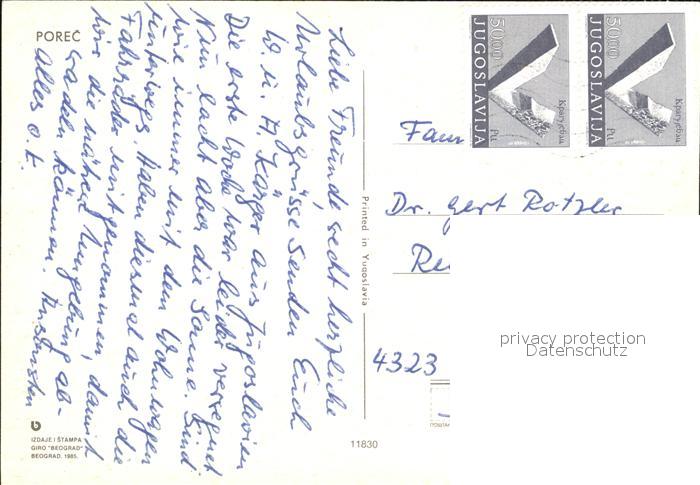 POREČ
Liebe Freunde recht herzliche
Urlaubsgrüsse senden Euch
W. u. H. Karger aus Jugoslavien
Die erste Woche war leider verregnet
Nun lacht aber die Sonne. Sind
wie immer mit dem Wohnwagen
unterwegs. Haben diesmal auch die
Fahrräder mitgenommen, damit
wir die nähere Umgebung ab-
radeln können. Ansonsten
alles o.k.
IZDAJE I ŠTAMPA
GIRO "BEOGRAD"
BEOGRAD, 1985.
Printed in Yugoslavia
11830
50.00
JUGOSLAVIJA
Крагујевац
50.00
JUGOSLAVIJA
Крагујевац
Fam
Dr. Gert Rotzler
Re
4323
privacy protection
Datenschutz